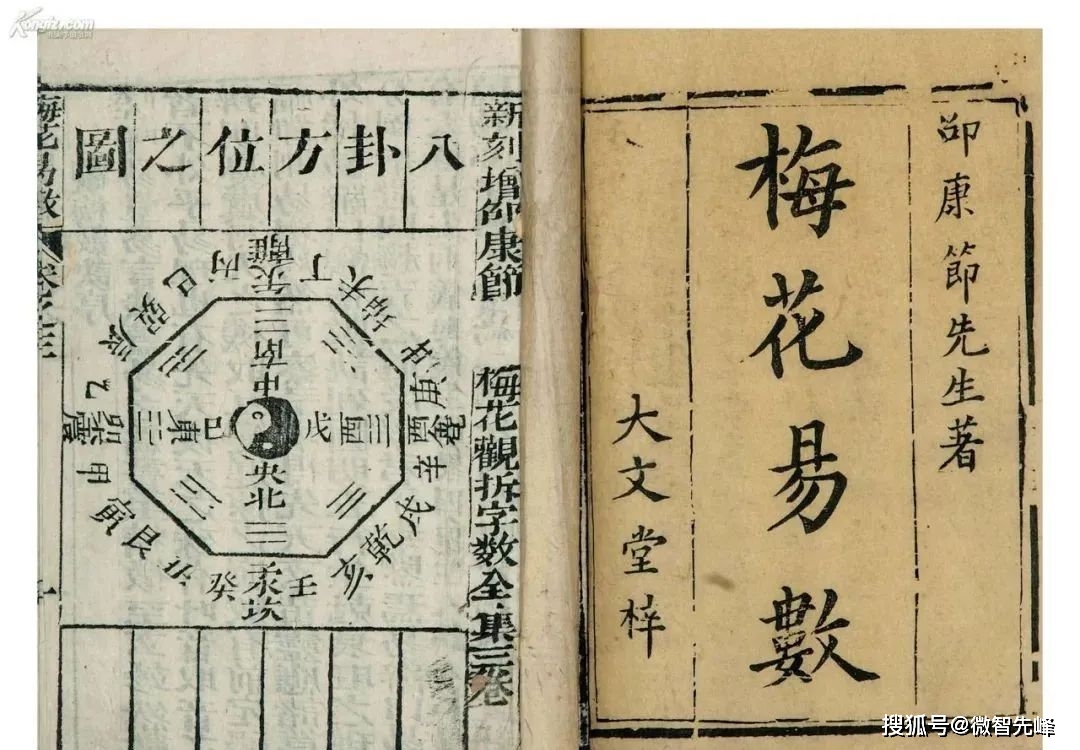 Kongfz.com
邵康節先生著
梅花易數
大文堂梓
新刻增邵康節 梅花觀拆字数全集三卷
八卦方位之圖
丙午丁
離
未坤申
庚酉辛
兌
戌乾亥
壬子癸
坎
丑艮寅
甲卯乙
震
辰巽巳
南
中
央
北
東
西
戊
己
梅花易数 卷之三
搜狐号@微智先峰